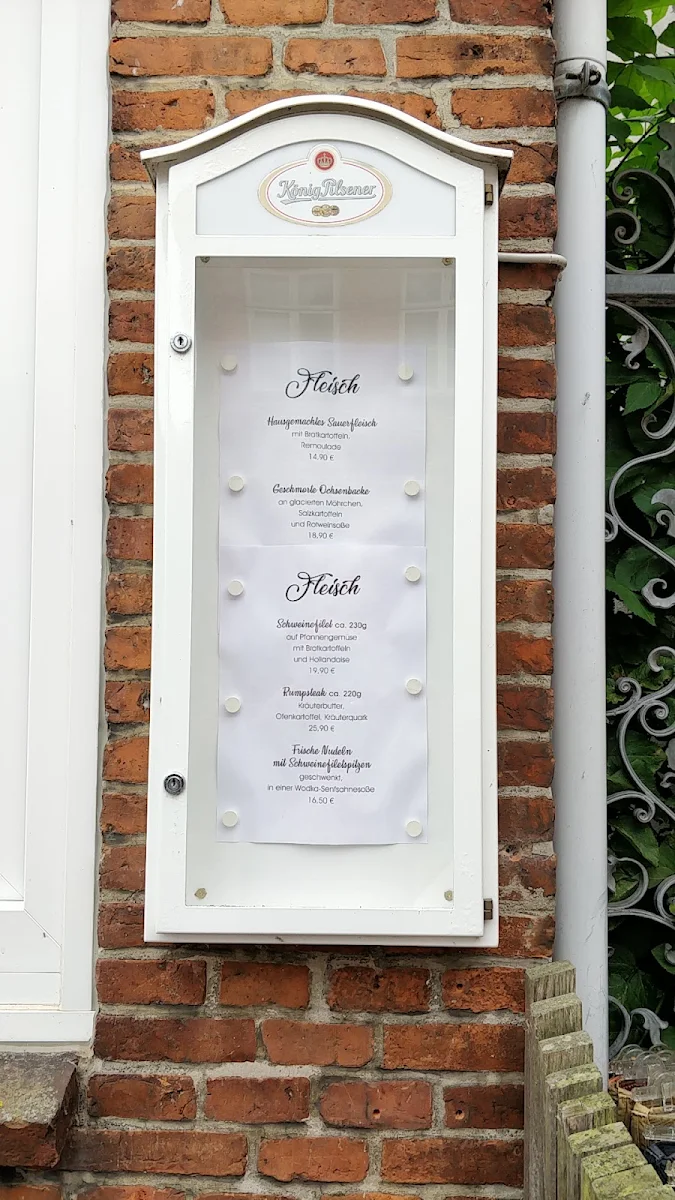 König Pilsener
Fleisch
Hausgemachtes Sauerfleisch
mit Bratkartoffeln,
Remoulade
14,90 €
Geschmorte Ochsenbacke
an glacierten Möhrchen,
Salzkartoffeln
und Rotweinsoße
18,90 €
Fleisch
Schweinefilet ca. 230g
auf Pfannengemüse
mit Bratkartoffeln
und Hollandaise
19,90 €
Rumpsteak ca. 220g
Kräuterbutter,
Ofenkartoffel, Kräuterquark
25,90 €
Frische Nudeln
mit Schweinefiletspitzen
geschwenkt,
in einer Wodka-Senfsahnesoße
16,50 €